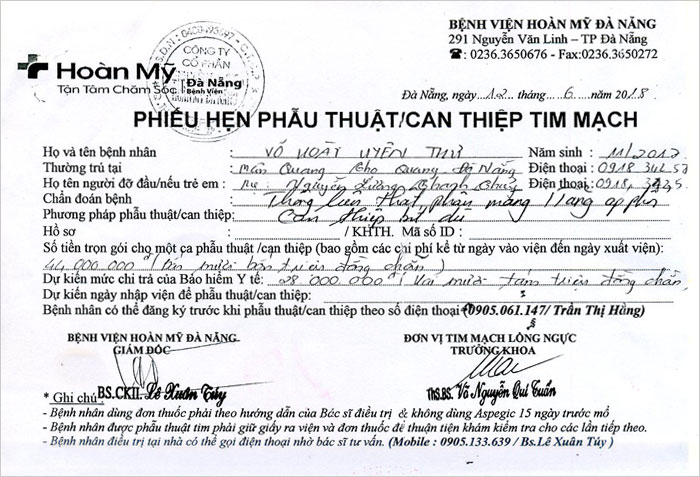 BỆNH VIỆN HOÀN MỸ ĐÀ NẴNG
291 Nguyễn Văn Linh – TP Đà Nẵng
☎: 0236.3650676 - Fax:0236.3650272
CÔNG TY
CỔ PHẦN
Hoàn Mỹ
Đà Nẵng
Bệnh Viện
Tận Tâm Chăm Sóc
Đà Nẵng, ngày 12 tháng 6 năm 2018
PHIẾU HẸN PHẪU THUẬT/CAN THIỆP TIM MẠCH
Họ và tên bệnh nhân : VÕ HOÀI UYÊN THƯ Năm sinh : 11/2017
Thường trú tại : Mân Quang Thọ Quang Đà Nẵng Điện thoại : 0918 34257
Họ tên người đỡ đầu/nếu trẻ em : Mẹ: Nguyễn Khanh Điện thoại : 0918
Chẩn đoán bệnh : Thông liên thất phần màng
Phương pháp phẫu thuật/can thiệp: Can thiệp bít dù
Hồ sơ : / KHTH. Mã số ID :
Số tiền trọn gói cho một ca phẫu thuật /can thiệp (bao gồm các chi phí kể từ ngày vào viện đến ngày xuất viện):
44 000 000 đ (Bốn mươi bốn triệu đồng chẵn)
Dự kiến mức chi trả của Bảo hiểm Y tế: 28 000 000 đ Hai mươi tám triệu đồng chẵn
Dự kiến ngày nhập viện để phẫu thuật/can thiệp:
Bệnh nhân có thể đăng ký trước khi phẫu thuật/can thiệp theo số điện thoại (0905.061.147/ Trần Thị Hùng)
BỆNH VIỆN HOÀN MỸ ĐÀ NẴNG ĐƠN VỊ TIM MẠCH LỒNG NGỰC
GIÁM ĐỐC TRƯỞNG KHOA
BS.CKII. Lê Xuân Túy ThS.BS. Võ Nguyễn Quí Tuấn
* Ghi chú:
- Bệnh nhân dùng đơn thuốc phải theo hướng dẫn của Bác sĩ điều trị & không dùng Aspegic 15 ngày trước mổ
- Bệnh nhân được phẫu thuật tim phải giữ giấy ra viện và đơn thuốc để thuận tiện khám kiểm tra cho các lần tiếp theo.
- Bệnh nhân điều trị tại nhà có thể gọi điện thoại nhờ bác sĩ tư vấn. (Mobile : 0905.133.639 / Bs.Lê Xuân Túy )